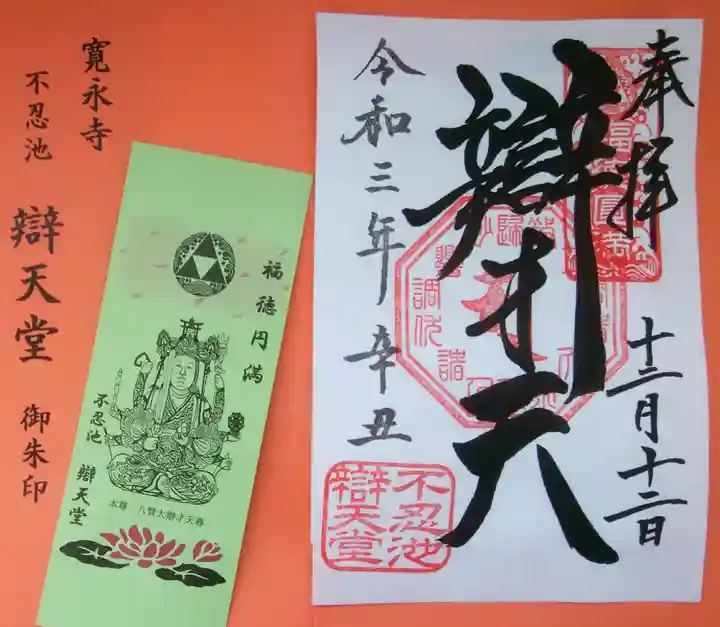 奉拝
十二月十二日
辯才天
令和三年辛丑
不忍池
辯天堂
福徳円満
不忍池 辯天堂
本尊 八臂大辯才天尊
寛永寺
不忍池 辯天堂 御朱印